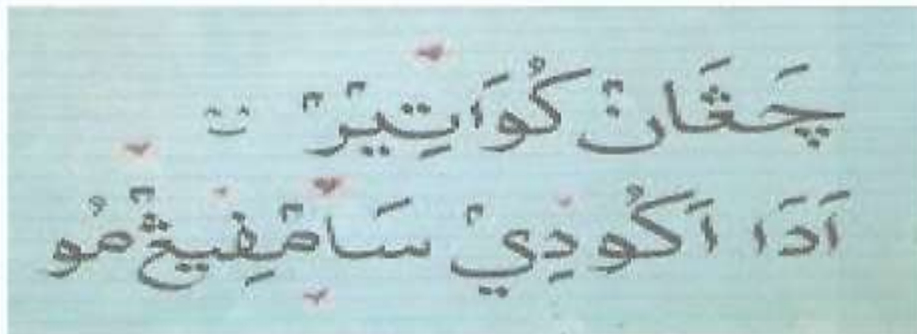 چَڠَانْ كُوَاتِيْرْ
اَدَا اَكُو دِيْ سَامْفِيڠْمُو